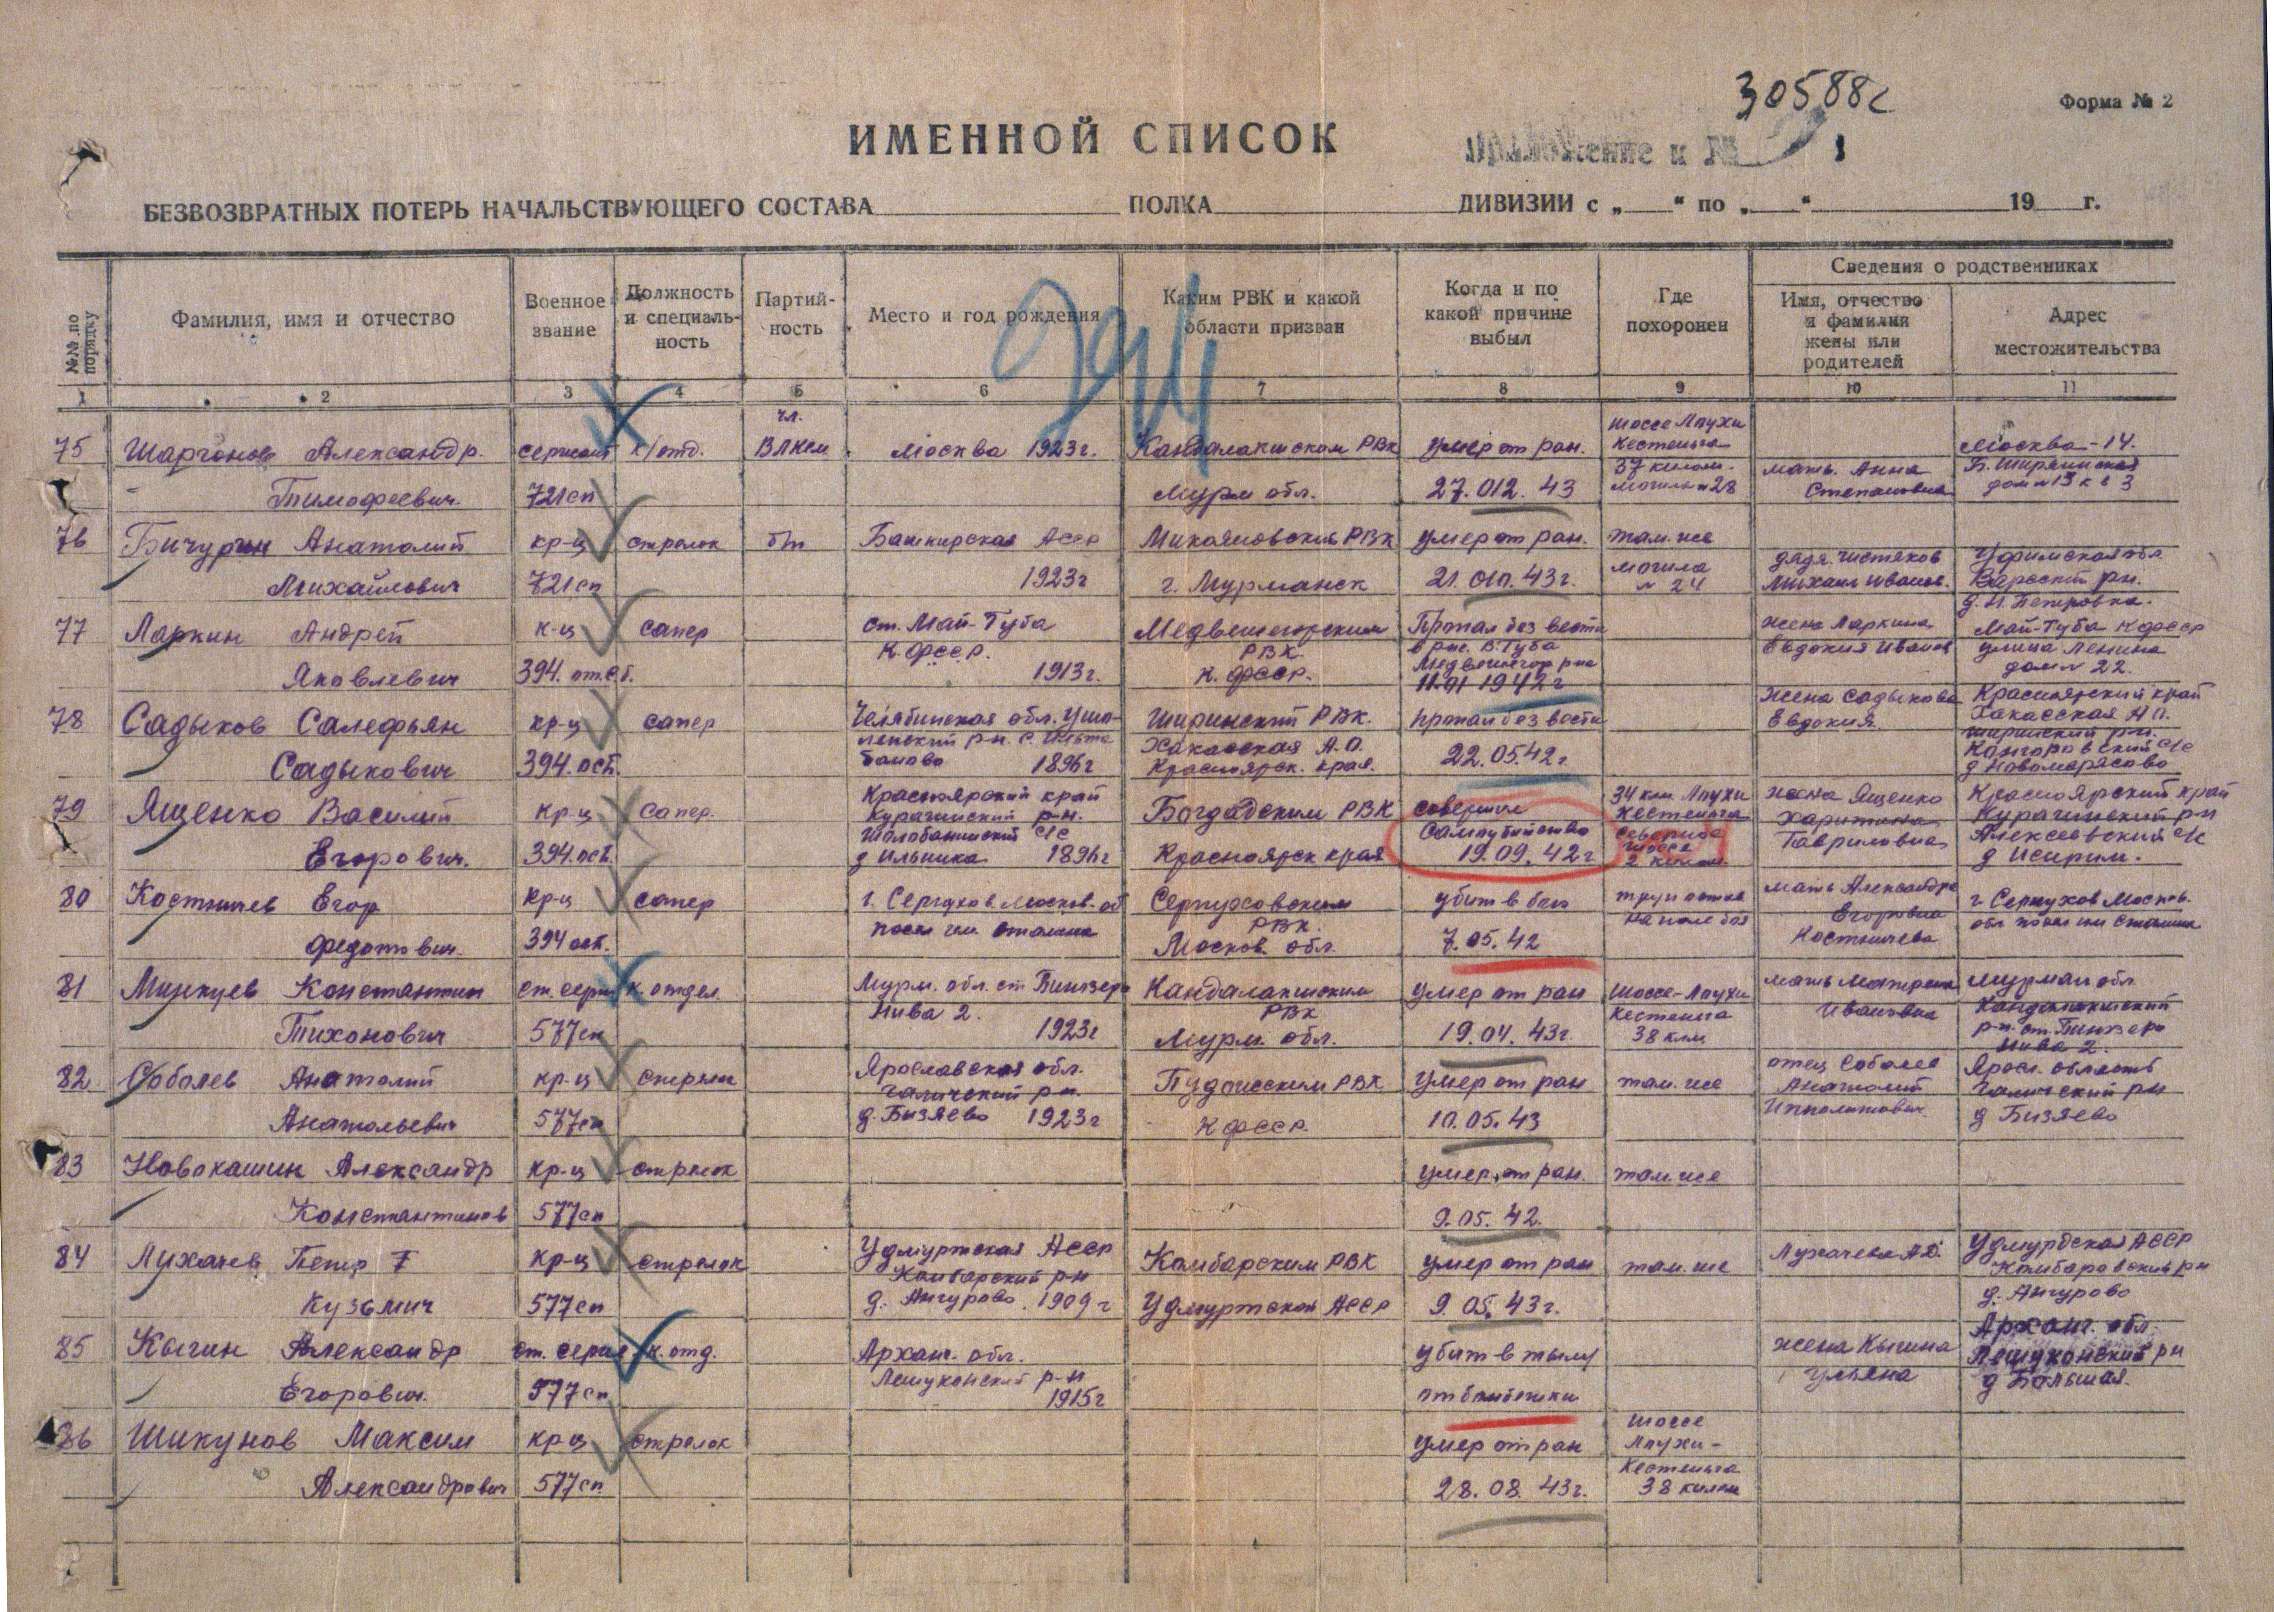 30588с
Форма № 2
ИМЕННОЙ СПИСОК
приложение к №
БЕЗВОЗВРАТНЫХ ПОТЕРЬ НАЧАЛЬСТВУЮЩЕГО СОСТАВА ПОЛКА ДИВИЗИИ с „ “ по „ “ 19 г.
№№ по порядку
Фамилия, имя и отчество
Военное звание
Должность и специаль-
ность
Партий-
ность
Место и год рождения
Каким РВК и какой
области призван
Когда и по
какой причине
выбыл
Где
похоронен
Сведения о родственниках
Имя, отчество
и фамилия
жены или
родителей
Адрес
местожительства
1 2 3 4 5 6 7 8 9 10 11
75 Шаргонов Александр Тимофеевич
сержант 721 сп
к/отд.
чл. ВЛКСМ
Москва 1923г.
Кандалакшском РВК
Мурм обл.
умер от ран.
27.012.43
шоссе Лоухи
Кестеньга
37 килом.
могила 28
мать. Анна
Степановна
Москва-14.
76 Бичурин Анатолий Михайлович
кр-ц 721 сп
стрелок
б/п
Башкирская АССР
1923г
Микояновским РВК
г. Мурманск
умер от ран.
21.010.43г.
там-же
могила
№ 24
дядя. Чистяков
Михаил Иванов.
Уфимская обл
рн.
д. Н. Петровка.
77 Ларкин Андрей Яковлевич
к-ц 394.
сапер
ст. Май-Губа
К.ФССР.
1913г.
Медвежегорским
РВК.
К.ФССР.
Пропал без вести
в рне. В.Губа
Медвежегор рна
11.01 1942г
жена Ларкина
Евдокия Иванов
Май-Губа КФССР
улица Ленина
дом № 22.
78 Садыков Салефьян Садыкович
кр-ц 394.осб.
сапер
Челябинская обл.
1896г
Ширинский РВК.
Хакасская А.О.
Красноярск. края.
пропал без вести
22.05.42г.
жена Садыкова
Евдокия.
Красноярский край
Хакасская АО.
ширинский рн.
с/с
д Новомарясово
79 Ященко Василий Егорович.
кр-ц 394.осб.
сапер.
Красноярский край
Курагинский р-н.
Шалобалинский с/с
д Ильинка 1896г
РВК
Красноярск края
совершил
самоубийство
19.09.42г
34 клм. Лоухи
Кестеньга
севернее
шоссе
2 килом.
жена Ященко
Харитина
Гавриловна
Красноярский край
Курагинский рн
Алексеевский с/с
80 Костычев Егор Федотович.
кр-ц 394 осб.
сапер
г. Серпухов Москов-об
посел им Сталина
Серпуховским
РВК.
Москов. обл.
убит в бою
7.05.42
труп остав
на поле боя
мать Александра
Егоровна
Костычева
г Серпухов Москов.
обл посел им Сталина
81 Минкуев Константин Тихонович
ст. серж 577сп
к. отдел.
Мурм. обл. ст
Нива 2.
1923г
Кандалакшским
РВК
Мурм. обл.
умер от ран
19.04.43г.
шоссе-Лоухи
Кестеньга
38 клм
мать Матрена
Ивановна
Мурман обл.
Кандалакшский
р-н. ст.
Нива 2.
82 Соболев Анатолий Анатольевич
кр-ц 577сп
стрелок
Ярославская обл.
Галичский рн.
д. Бизяево 1923г
Пудожским РВК
КФССР.
умер от ран
10.05.43
там-же
отец Соболев
Анатолий
Ипполитович
Яросл. область
Галичский рн
д Бизяево
83 Новокашин Александр Константинов
кр-ц 577сп
стрелок
умер от ран.
9.05.42.
там-же
84 Лухачев Петр Кузьмич
кр-ц 577сп
стрелок
Удмуртская АССР
Камбарский рн
д. Ангурово. 1909г
Камбарским РВК
Удмуртской АССР
умер от ран
9.05.43г.
там-же
Лухачева А.Д.
Удмурдская АССР
Камбаровский рн
д. Ангурово
85 Кыгин Александр Егорович.
ст. серж 577сп
к. отд.
Архан. обл.
Лешуконский р-н
1915г
убит в тылу
от бомбежки
жена Кыгина
Ульяна
Арханг. обл.
Лешуконский рн
д Большая.
86 Шикунов Максим Александрович
кр-ц 577сп.
стрелок
умер от ран
28.08.43г.
шоссе
Лоухи-
Кестеньга
38 килом